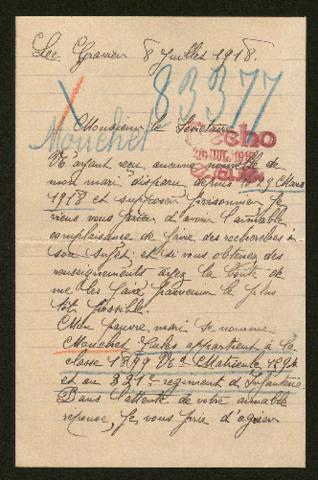 Le Gravier 8 Juillet 1918.
83377
Monsieur le Secrétaire
Mouchet
Echo
20 JUL 1918
N'ayant reçu aucune nouvelle de
mon mari disparu depuis le 29 Mars
1918 et supposé prisonnier je
viens vous prier d'avoir l'aimable
complaisance de faire des recherches à
son sujet; et si vous obtenez des
renseignements ayez la bonté de
me les faire parvenir le plus
tôt possible.
Mon pauvre mari se nomme
Mouchet Jules appartient à la
classe 1899 No Matricule
et au 331e regiment d'Infanterie
Dans l'attente de votre aimable
reponse, je vous prie d'agréer